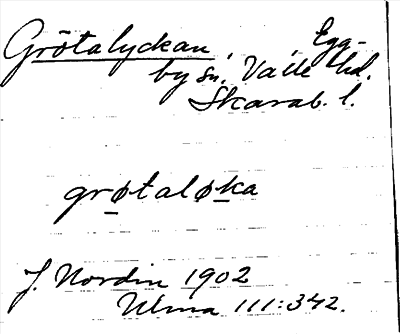 Grötalyckan, Egg-
by sn. Valle hd.
Skarab. l.
grøtaløka
J. Nordin 1902
Ulma 111:342.